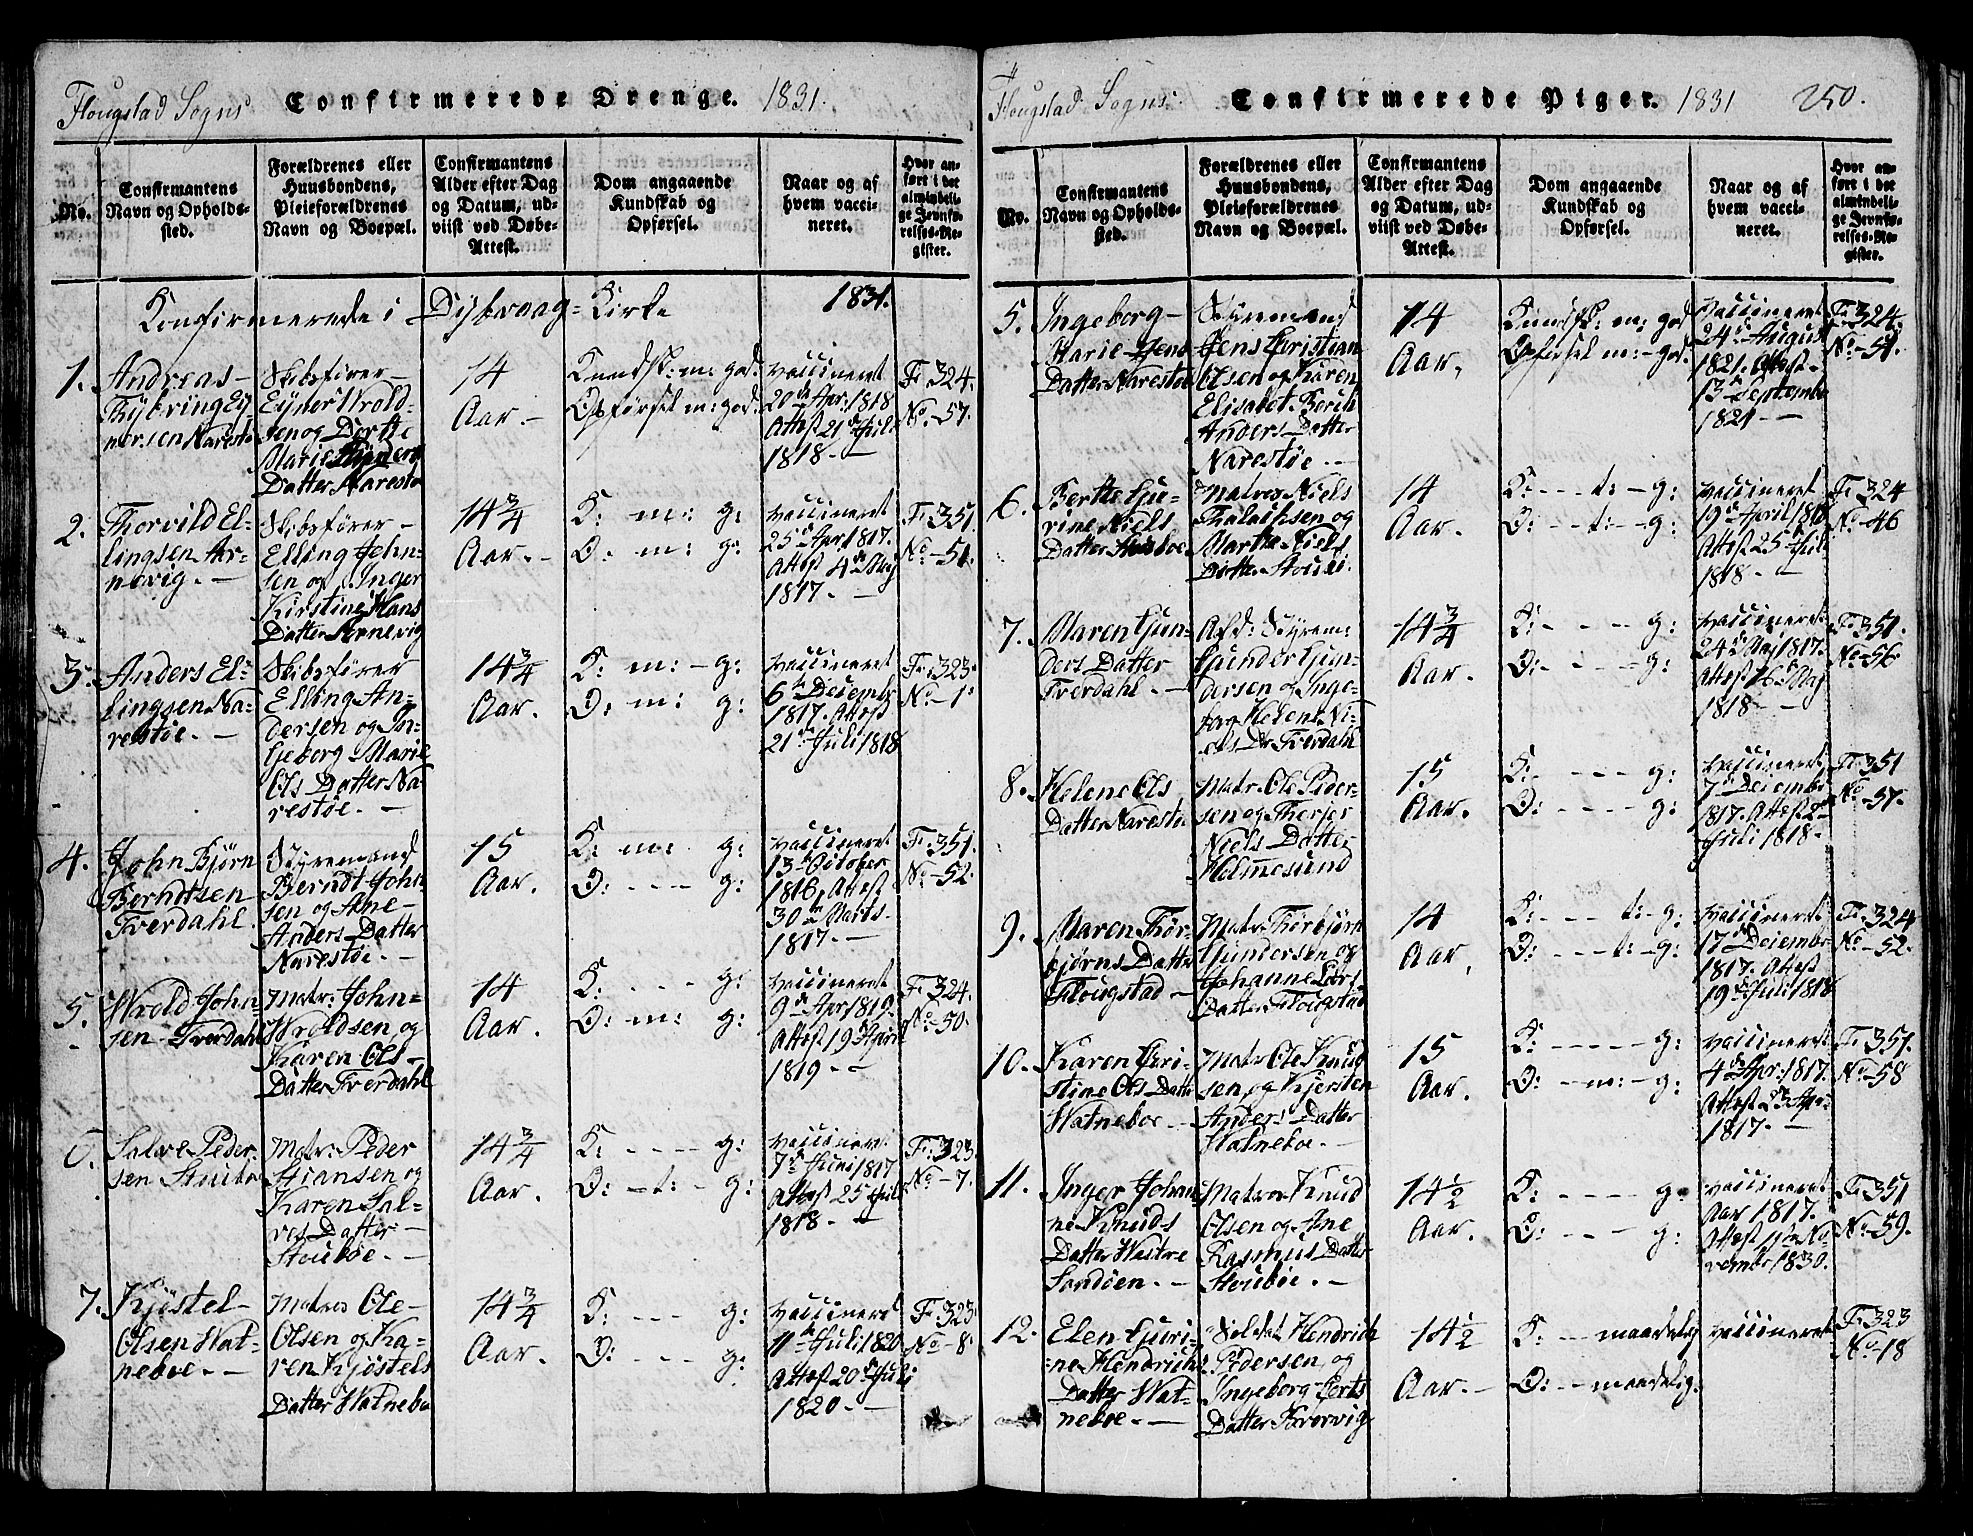 Flougstad Sogns Confirmerede Drenge. 1831.
No.
Confirmantens
Navn og Opholds-
sted.
Forældrenes eller
Huusbondens,
Pleieforældrenes
Navn og Boepæl.
Confirmantens
Alder efter Dag
og Datum, ud-
viist ved Døbe-
Attest.
Dom angaaende
Kundskab og
Opførsel.
Naar og af
hvem vacci-
neret.
Hvor an-
ført i det
almindeli-
ge Jevnfø-
relses-Re-
gister.
Konfirmerede i Dybvaag-Kirke 1831.
1.
Andreas-
Eynersen Naresto
Skibsfører-
Eyner Wrold-
sen og Dorthe
Marie
Datter Naresto
14
Aar.-
Kundsk: m: god.
Opførsel m: god.
vaccineret
20de Apr: 1818
Attest 21de Juli
1818.-
F: 324.
No-57.
2.
Thorvild El-
lingsen Ar-
nevig.-
Skibsfører-
Elling John-
sen og Inger
Kirstine Hans
Datter Arnevig
14 3/4
Aar.-
K: m: g:
O: m: g:
vaccineret
25de Apr. 1817.
Attest 4de Maj
1817.-
F: 351.
No-51.
3.
Anders El-
lingsen Na-
restøe.-
Skibsfører
Elling An-
dersen og In-
geborg Marie
Ols Datter Na-
restøe.-
14 3/4
Aar.
K: m:- g:
O: m: g:
vaccineret
6te Decembr
1817. Attest
21de Juli 1818
F: 323.
No-1.
4.
John Bjørn
Berndtsen
Tverdahl.
Styremand
Berndt John-
sen og Ane-
Anders Datter
Narestøe.-
15
Aar.
K: m: g:
O: --- g:
vaccineret
13de October
1816. Attest
30te Marts-
1817.-
F: 351.
No-52.
5.
Wrold John-
sen Tverdahl
Matr: John-
Wroldsen og
Karen Ols-
Datter Tverdahl
14
Aar.
K: --- g:
O: m: g:
vaccineret
9de Apr 1819.
Attest 19de April
1819.-
F: 324.
No-50.
6.
Salve Peder-
sen Stouboe
Matr: Peder
Stiansen og
Karen Sal-
ves Datter-
Stouboe.-
14 3/4
Aar.
K: ---- g:
O: -t:- g:
vaccineret
7de Juni 1817
Attest 25de Juli
1818.-
F: 323.
No-7.
7.
Kjøstel-
Olsen Wat-
neboe.-
Matros Ole-
Olsen og Ka-
ren Kjøstels
Datter Watnebo
14 3/4
Aar.
K: --- g:
O: --- g:
vaccineret
11te Juli 1820
Attest 20de Juli
1820.-
F: 323.
No-8.
Flougstad Sogns Confirmerede Piger. 1831 250.
No.
Confirmantens
Navn og Opholds-
sted.
Forældrenes eller
Huusbondens,
Pleieforældrenes
Navn og Boepæl.
Confirmantens
Alder efter Dag
og Datum, ud-
viist ved Døbe-
Attest.
Dom angaaende
Kundskab og
Opførsel.
Naar og af
hvem vacci-
neret.
Hvor an-
ført i det
almindeli-
ge Jevnfø-
relses-Re-
gister.
5.
Ingeborg-
Marie Jens
Datter Narestøe
Styremand
Jens Christian
Olsen og Karen
Elisabet Berith
Anders Datter
Narestøe.-
14
Aar.
Kundsk: m: god
Opførsel m:- god.
vaccineret
24de August
1821. Attest-
13de Septembr
1821-
F: 324.
No-51.
6.
Berthe Gu-
rine Niels
Datter Stouboe
Matros Niels
og
Marthe Niels
Datter
14
Aar.
K: --- t:- g:
O: -- t:- g:
vaccineret
19de April 1818
Attest 25de Juli
1818.-
F: 324
No-46
7.
Maren Gun-
ders Datter
Tverdahl.-
Afd: Styrem:
Gunder Gun-
dersen og Inge-
borg Helene Ni-
els Dr Tverdahl
14 3/4
Aar.
K: --- g:
O: --- g:
vaccineret
24de Maj 1817.
Attest 16de Maj
1818-
F: 351.
No-56
8.
Helene Ols
Datter Naresto
Matr. Ole Peder-
sen og Therjer
Niels Datter
Holmesund
15
Aar.
K: --- g:
O: --- g:
vaccineret
7de Decembr
1817. Attest 2de
Juli 1818.-
F: 351
No-57.
9.
Maren Thor-
bjørns Datter
Flougstad-
Matr. Thorbjørn
Gundersen og
Johanne Lars
Datter Flougstad
14
Aar.
K: --- t:- g:
O: --- t:- g:
vaccineret
17de Decembr
1817. Attest
19de Juli 1818
F: 324
No-52.
10.
Karen Chri-
stine Ols Datter
Watneboe-
Matr Ole Knud
sen og Kjersten
Anders Datter
Watneboe.-
15
Aar.
K: ---- g:
O: -- m:- g:
vaccineret
4de Apr: 1817.
Attest 23de Apr:
1817.-
F: 351.
No-58
11.
Inger Johan-
ne Knuds
Datter Westre
Sandøen.-
Matros Knud
Olsen og Ane
Rasmus Datter
Stouboe.-
14 1/2
Aar.
K: ---- g:
O: --- g:
vaccineret
Aar 1817.
Attest 11te No-
vembr 1830.
F: 351
No-59.
12.
Elen Guri-
ne Hendrichs
Datter Wat-
neboe.-
Soldat Hendrich
Pedersen og
Ingeborg Gerts
Datter Kvervig
14 1/2
Aar.-
K: -- maadelig
O: -- maadelig.
vaccineret
F: 323
No-18